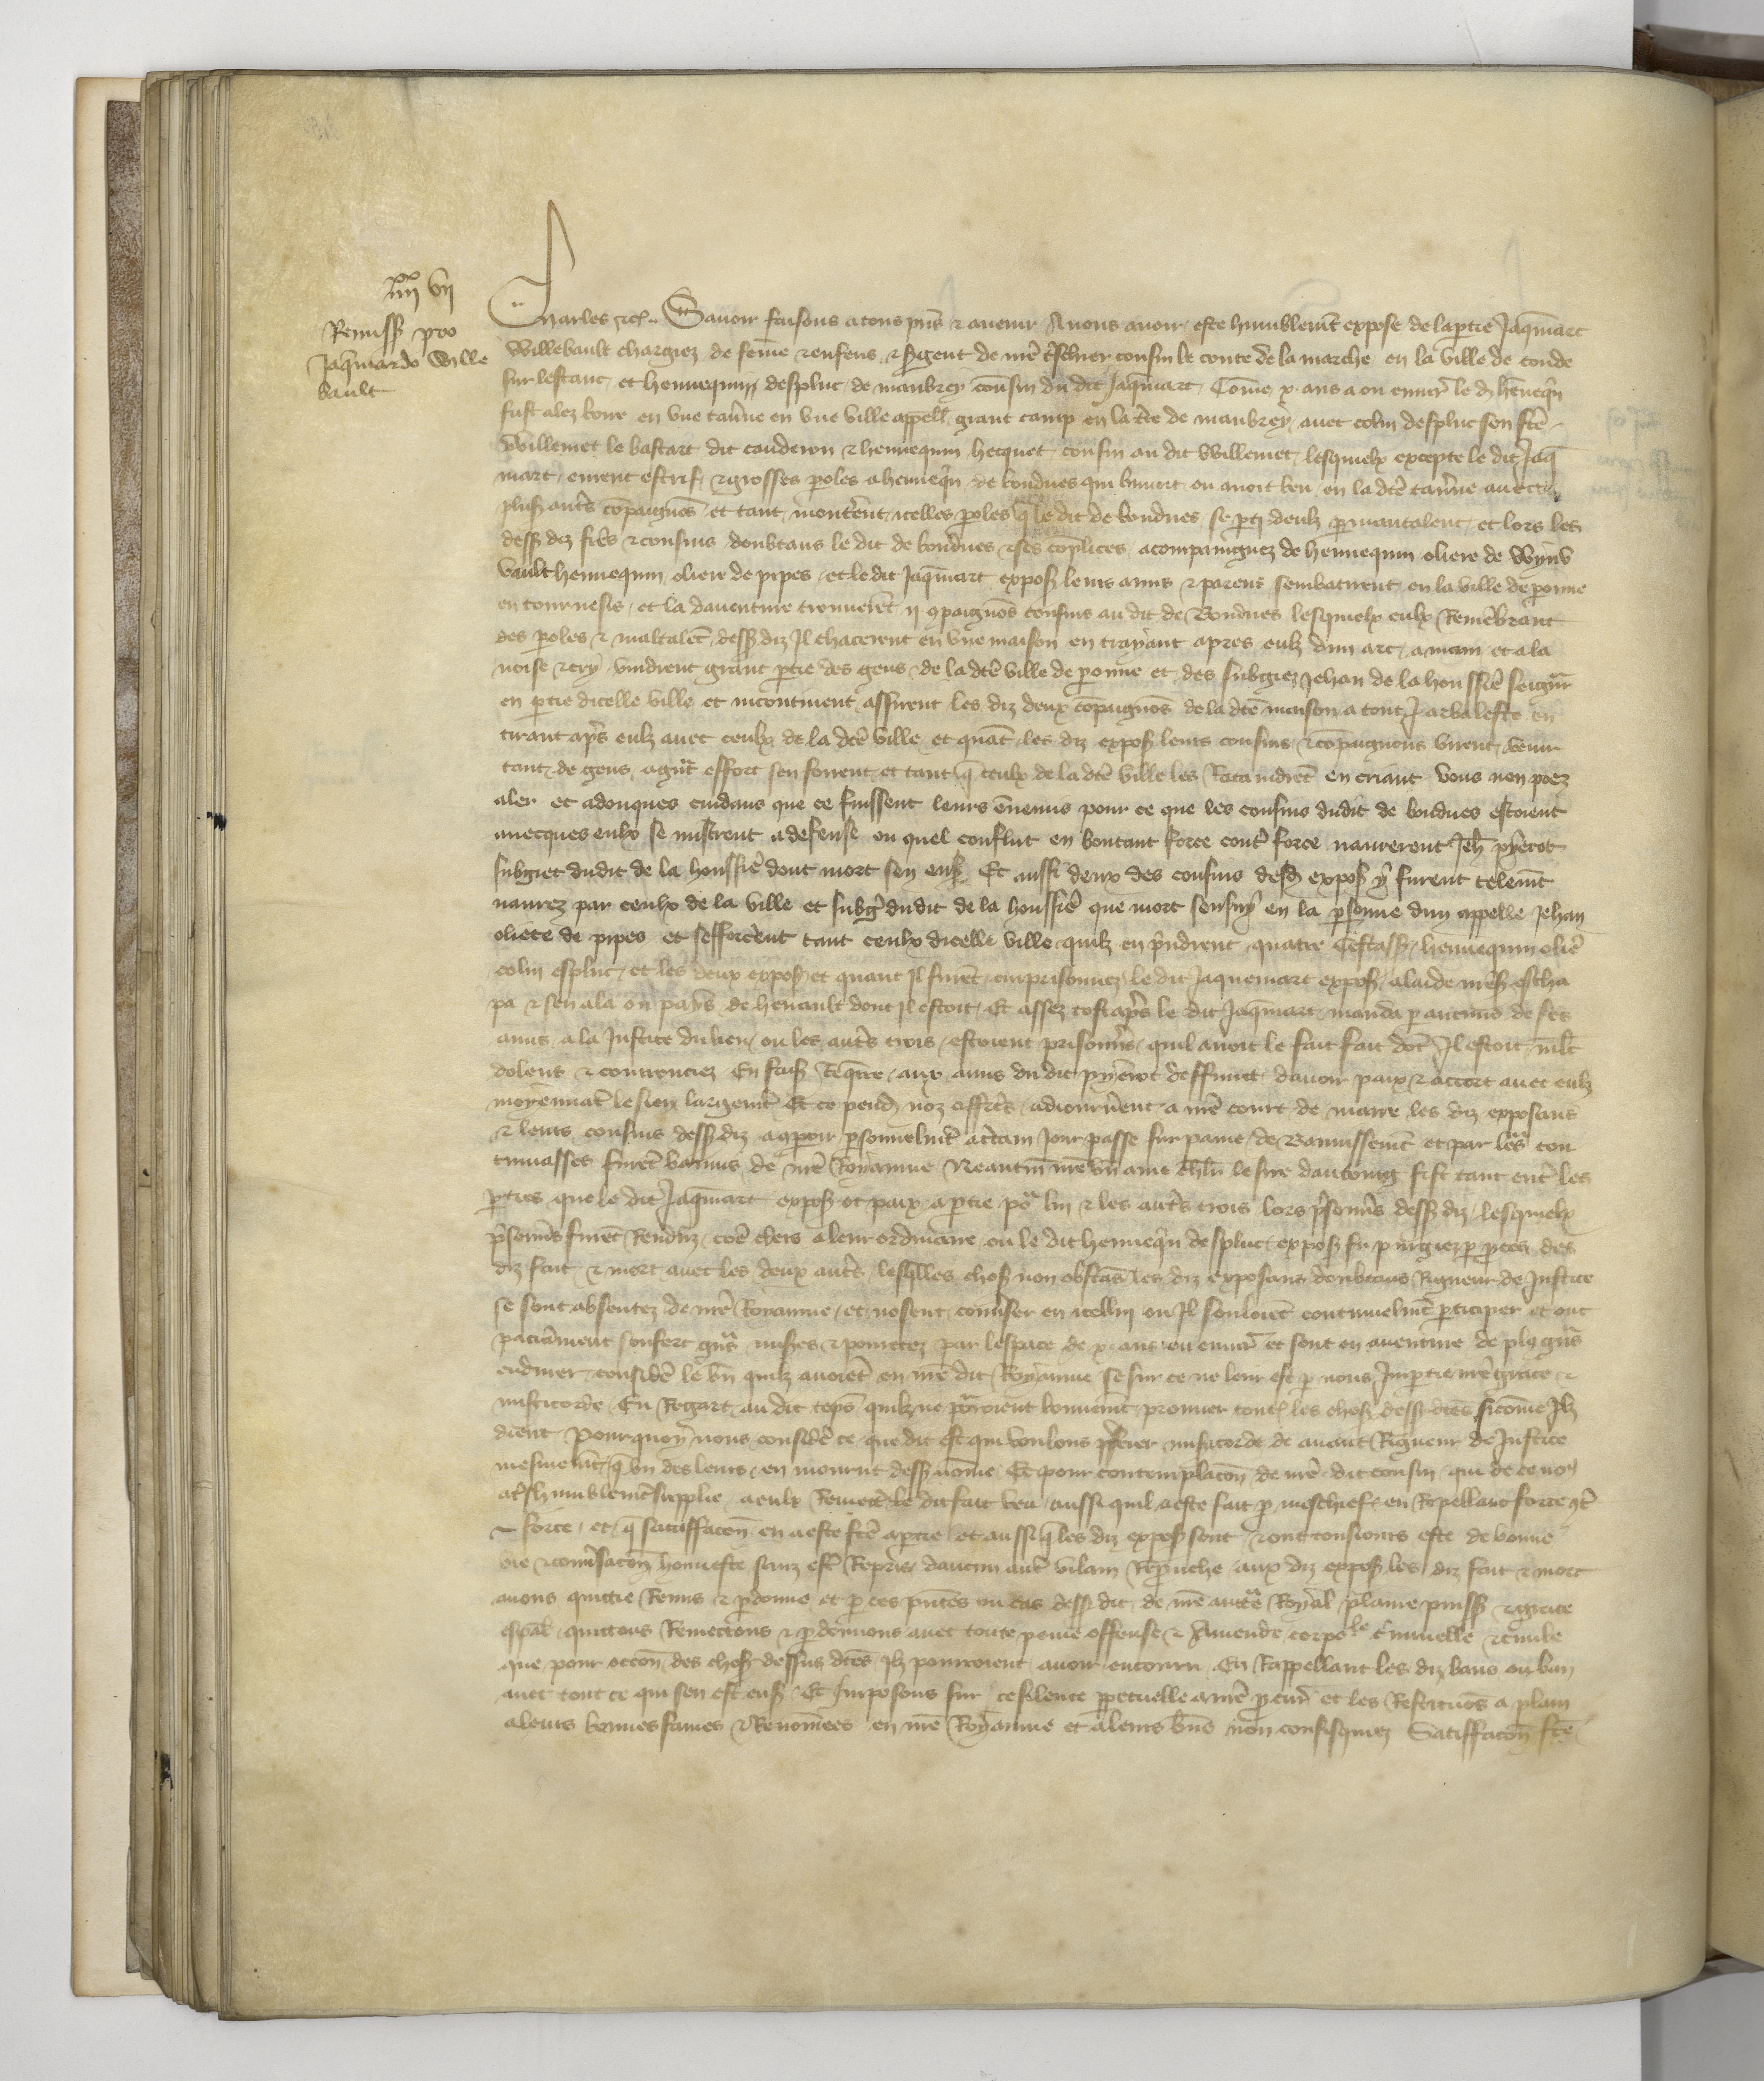 iiiixx vii
Remiss pro
Jaqmardo Wille
bault
Charles etc. Savoir faisons a tous pns et avenir A nous avoir este humblemt expose de la ptie Jaqmart
Willebault chargiez de feme et enfens et sgent de nre tschier cousin le conte de la marche en la ville de conde
sur lestanc et hennequin despluc de maubrey cousin du dit Jaqmart Come x ans a ou enuir le d henneqn
fust alez boire en une tavne en une ville appell grant camp en la de maubrey avec colin despluc son fre
Willemet le bastart dit cauderon et hennequin hecquet cousin au dit Willemet lesquelx excepte le dit Jaq
mart eurent estrif et grosses poles a henneqn de bondues qui buvoit ou avoit beu en la dce tavne avecc
plus autrs compaignos et tant monterent icelles poles q le dit de bondues se pti deulz p mautalent et lors les
dess diz fres et cousins doubtans le dit de bondues et ses coplices acompaigniez de hennequin oliere de
vault hennequin oliere de pipes et le dit Jaqmart expos leurs amis et parens sembatirent en la ville de peronne
en tournesis et la daventure trouveret ii compaignos cousins au dit de Bondues lesquelx eulx Remebrant
des poles et maltalet dess diz Il chacerent en une maison en trayant apres eulz dun arc a main et a la
noise et cry vindrent grant ptie des gens de la dce ville de peronne et des subgiez Jehan de la houssie seignr
en ptie dicelle ville et incontinent assirent les diz deux copaignos de la dce maison a tout J arbaleste en
tirant aps eulz avec ceulx de la dce ville et quat les diz expos leurs cousins et copaignons virent venir
tant de gens a gnt effort sen fouirent et tant q ceulx de la dce ville les Rataindret en criant vous nen poez
aler et adonques cuidans que ce fuissent leurs ennemis pour ce que les cousins dudit de bondues estoient
avecques eulx se mistrent a defense ou quel conflict en boutant force contre force navrerent Jeh pierot
subgiet dudit de la houssie dont mort sen ensuy Et aussi deux des cousins desd expos y furent telemt
navrez par ceulx de la ville et subg dudit de la houssie que mort sensuy en la psonne dun appelle Jehan
oliere de pipes et sefforcerent tant ceulx dicelle ville quilz en prindrent quatre Cestass hennequin olie
colin espluc et les deux expos et quant Il furet emprisonnez le dit Jaquemart expos a laide escha
pa et sen ala ou pays de henault dont Il estoit Et assez tost aps le dit Jaqmart manda p aucuns de ses
amis a la Justice du lieu ou les autrs trois estoient prisonns quil avoit le fait fait dot Il estoit mlt
dolent et courrouciez En fais Requre aux amis du dit pyerot deffunct davoir paix et accort avec eulz
moyennat le sien largemt Et ce pend noz offics adiournerent a nre court de maire les diz exposans
et leurs cousins dess diz a compoir psonnelmt a ctain Jour passe sur paine de Bannissemt et par lrs con
tumasses furet bannis de nre Royaume Neantm nre bn ame chlr le sire dantoing fist tant entre les
pties que le dit Jaqmart expos ot paix a ptie por lui et les autrs trois lors prisonns dess diz lesquelx
prisonns furet Renduz coe clers a leur ordinaire ou le dit henneqn despluc expos fu purgiez p pces des
diz fait et mort avec les deux autrs lesqlles chos non obstas les diz exposans doubtans Rigueur de Justice
se sont absentez de nre Royaume et nosent conuser en icellui ou Il souloiet continuelmt pticiper et ont
paciament souffert gns mises et pouretez par lespace de x ans ou enuir et sont en aventure de plus gns
endurer conside le bn quilz avoiet en nre dit Royaume se sur ce ne leur est p nous Impartie nre grace et
misericorde En Regart au dit teps quilz ne porroient bonnemt prouver tout les chos dess dces sicome Ilz
dient Pourquoy nous conside ce que dit est qui voulons pferer misericorde de avant Rigueur de Justice
mesmemt q un des leurs en mourut dess nome Et pour contemplacon de nre dit cousin qui de ce nos
a tshumblemt supplie a eulx Remet le dit fait veu aussi quil a este fait p meschief en Repellant force ct
force et q satisfacon en a este fce a ptie et aussi q les diz expos sont et ont tousiours este de bonne
vie et conusacon honneste sanz est Repris daucun aut vilain Reprouche aux diz expos les diz fait et mort
avons quittie Remis et pdonne et p ces pntes ou cas dess dit de nre auctte Royal plaine puiss et grace
espal quittons Remectons et pdonnons avec toute peine offense et Amende corpole cminelle et civile
que pour occon des chos dessus dces Ilz pourroient avoir encouru En Rappellant les diz bans ou ban
avec tout ce qui sen est ens Et Imposons sur ce silence ppetuelle a nre pcur et les Restituos a plain
a leurs bonnes fames et Renomees en nre Royaume et a leurs bns non confisquiez Satisfacon fce